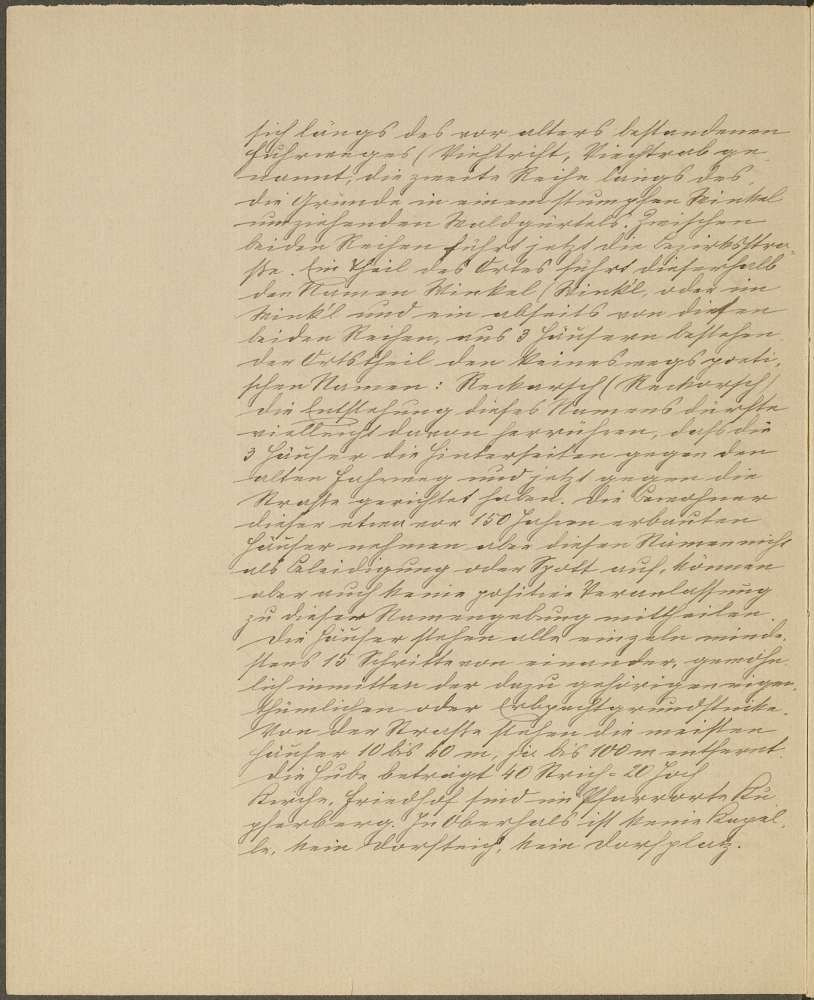 sich längs des vor alters bestandenen
Fuhrweges (Viehtrift, Viechtrab ge-
nannt, die zweite Reihe längs des
die Gründe in einem stumpfen Winkel
umziehenden Waldgürtels. Zwischen
beiden Reihen führt jetzt die Bezirksstra-
ße. Ein Theil des Ortes führt dieserhalb
den Namen Winkel (Wink'l, oder im
Wink'l und ein abseits von diesen
beiden Reihen, aus 3 Häusern bestehen
der Ortstheil den keineswegs poeti-
schen Namen: Reckarsch (Reckorsch)
Die Entstehung dieses Namens dürfte
vielleicht davon herrühren, daß die
3 Häuser die Hinterseiten gegen den
alten Fahrweg und jetzt gegen die
Straße gerichtet haben. Die Bewohner
dieser etwa vor 150 Jahren erbauten
Häuser nehmen aber diesen Namen nicht
als Beleidigung oder Spott auf, können
aber auch keine positive Veranlassung
zu dieser Namengebung mittheilen.
Die Häuser stehen alle einzeln minde-
stens 15 Schritte von einander, gewöhn-
lich inmitten der dazu gehörigen eigen-
thümlichen oder Erbpachtgrundstücke.
Von der Straße stehen die meisten
Häuser 10 bis 60 m, bis 100 m entfernt.
Die Hube beträgt 40 Strich = 20 Joch
Kirche, Friedhof sind im Pfarrorte Ku
pferberg. In Oberhals ist keine Kapel-
le, kein Dorfteich, kein Dorfplatz.